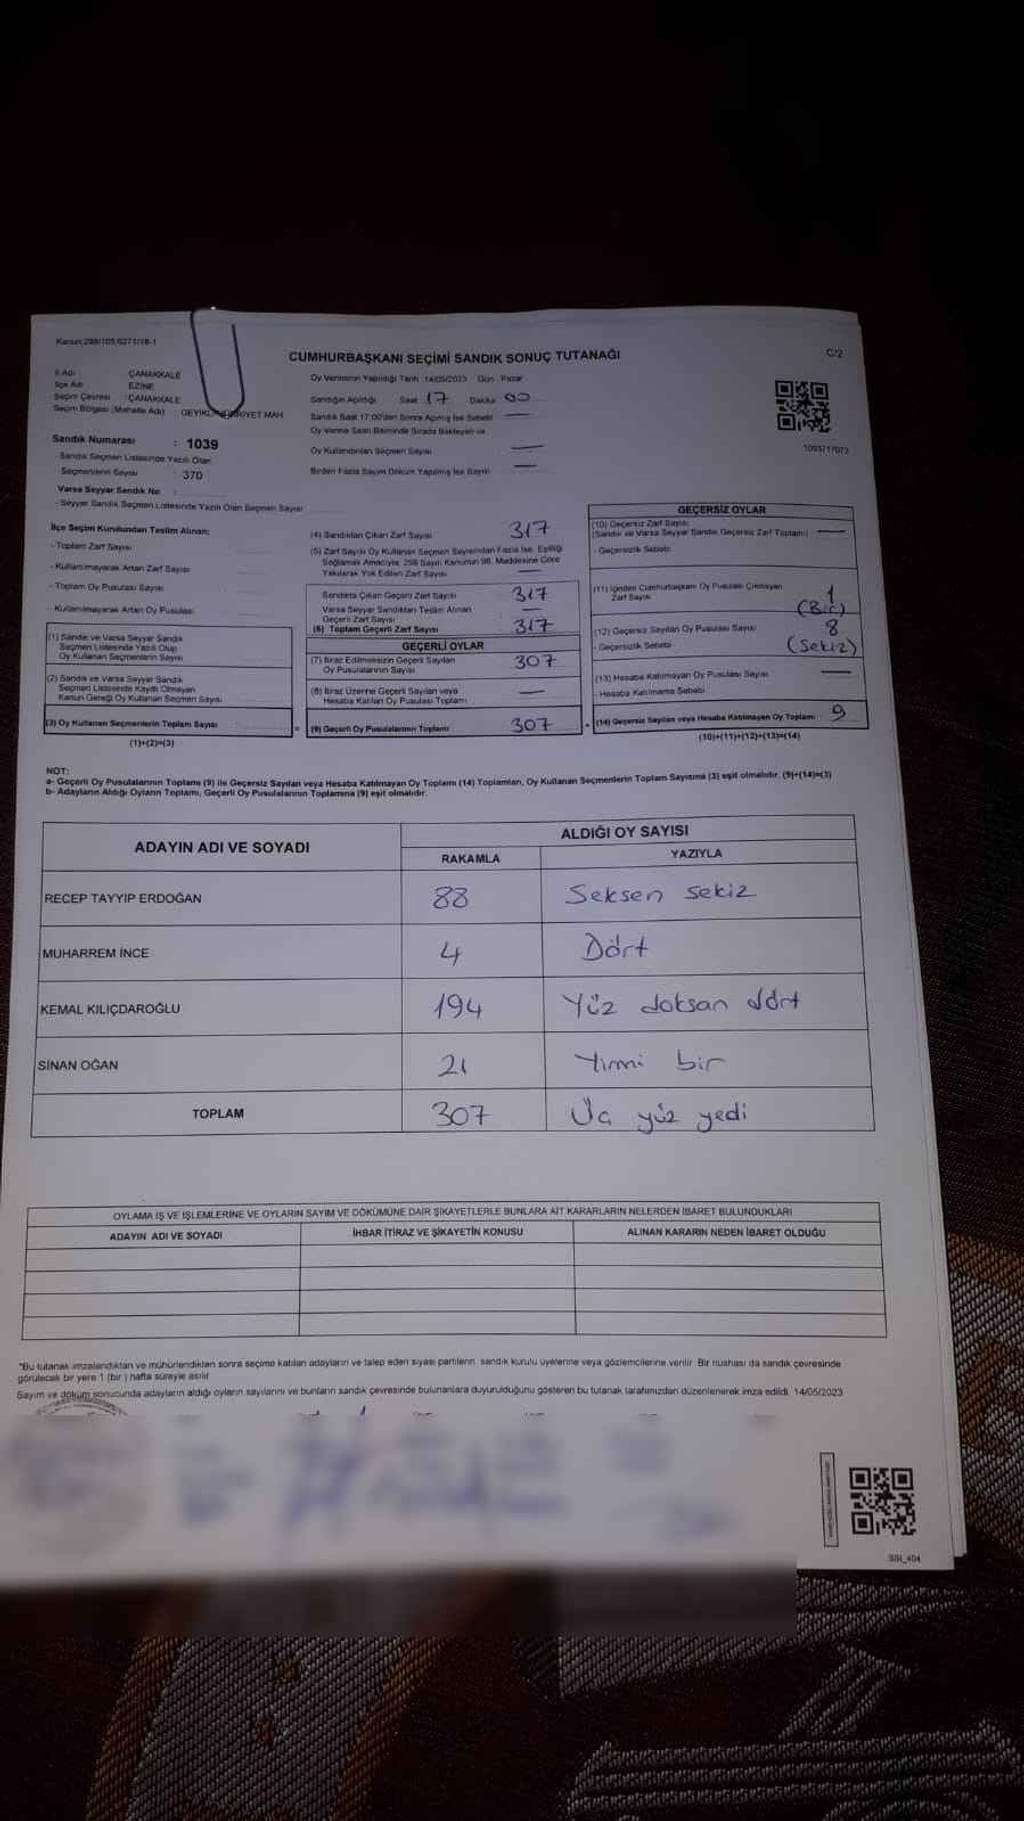 Kanun:298/105,6271/18-1
CUMHURBAŞKANI SEÇİMİ SANDIK SONUÇ TUTANAĞI
C/2
İl Adı : ÇANAKKALE
İlçe Adı : EZİNE
Seçim Çevresi : ÇANAKKALE
Seçim Bölgesi (Mahalle Adı) : GEYİKLİ
Sandık Numarası : 1039
Sandık Seçmen Listesinde Yazılı Olan
Seçmenlerin Sayısı 370
Varsa Seyyar Sandık No :
- Seyyar Sandık Seçmen Listesinde Yazılı Olan Seçmen Sayısı
Oy Vermenin Yapıldığı Tarih :14/05/2023 Gün : Pazar
Sandığın Açıldığı Saat 17 Dakika 00
Sandık Saat 17:00'den Sonra Açılmış İse Sebebi —
Oy Verme Saati Bitiminde Sırada Bekleyen ve
Oy Kullandırılan Seçmen Sayısı —
Birden Fazla Sayım Döküm Yapılmış İse Sayısı —
İlçe Seçim Kurulundan Teslim Alınan:
- Toplam Zarf Sayısı
- Kullanılmayarak Artan Zarf Sayısı
- Toplam Oy Pusulası Sayısı
- Kullanılmayarak Artan Oy Pusulası
(1) Sandık ve Varsa Seyyar Sandık
Seçmen Listesinde Yazılı Olup
Oy Kullanan Seçmenlerin Sayısı
(2) Sandık ve Varsa Seyyar Sandık
Seçmen Listesinde Kayıtlı Olmayan
Kanun Gereği Oy Kullanan Seçmen Sayısı
(3) Oy Kullanan Seçmenlerin Toplam Sayısı
(1)+(2)=(3)
(4) Sandıktan Çıkan Zarf Sayısı 317
(5) Zarf Sayısı Oy Kullanan Seçmen Sayısından Fazla İse, Eşitliği
Sağlamak Amacıyla, 298 Sayılı Kanunun 98. Maddesine Göre
Yakılarak Yok Edilen Zarf Sayısı —
Sandıkta Çıkan Geçerli Zarf Sayısı 317
Varsa Seyyar Sandıktan Teslim Alınan
Geçerli Zarf Sayısı —
(6) Toplam Geçerli Zarf Sayısı 317
GEÇERLİ OYLAR
(7) İtiraz Edilmeksizin Geçerli Sayılan
Oy Pusulalarının Sayısı 307
(8) İtiraz Üzerine Geçerli Sayılan veya
Hesaba Katılan Oy Pusulası Toplamı —
(9) Geçerli Oy Pusulalarının Toplamı 307
1095717073
GEÇERSİZ OYLAR
(10) Geçersiz Zarf Sayısı
(Sandık ve Varsa Seyyar Sandık Geçersiz Zarf Toplamı) —
- Geçersizlik Sebebi
(11) İçinden Cumhurbaşkanı Oy Pusulası Çıkmayan
Zarf Sayısı 1
(Bir)
(12) Geçersiz Sayılan Oy Pusulası Sayısı 8
- Geçersizlik Sebebi (Sekiz)
(13) Hesaba Katılmayan Oy Pusulası Sayısı —
- Hesaba Katılmama Sebebi
(14) Geçersiz Sayılan veya Hesaba Katılmayan Oy Toplamı 9
(10)+(11)+(12)+(13)=(14)
NOT:
a- Geçerli Oy Pusulalarının Toplamı (9) ile Geçersiz Sayılan veya Hesaba Katılmayan Oy Toplamı (14) Toplamları, Oy Kullanan Seçmenlerin Toplam Sayısına (3) eşit olmalıdır. (9)+(14)=(3)
b- Adayların Aldığı Oyların Toplamı, Geçerli Oy Pusulalarının Toplamına (9) eşit olmalıdır.
ADAYIN ADI VE SOYADI ALDIĞI OY SAYISI
RAKAMLA YAZIYLA
RECEP TAYYIP ERDOĞAN 88 Seksen sekiz
MUHARREM İNCE 4 Dört
KEMAL KILIÇDAROĞLU 194 Yüz doksan dört
SİNAN OĞAN 21 Yirmi bir
TOPLAM 307 Üç yüz yedi
OYLAMA İŞ VE İŞLEMLERİNE VE OYLARIN SAYIM VE DÖKÜMÜNE DAİR ŞİKAYETLERLE BUNLARA AİT KARARLARIN NELERDEN İBARET BULUNDUKLARI
ADAYIN ADI VE SOYADI İHBAR İTİRAZ VE ŞİKAYETİN KONUSU ALINAN KARARIN NEDEN İBARET OLDUĞU
*Bu tutanak imzalandıktan ve mühürlendikten sonra seçime katılan adayların ve talep eden siyasi partilerin, sandık kurulu üyelerine veya gözlemcilerine verilir. Bir nüshası da sandık çevresinde
görülecek bir yere 1 (bir ) hafta süreyle asılır
Sayım ve döküm sonucunda adayların aldığı oyların sayılarını ve bunların sandık çevresinde bulunanlara duyurulduğunu gösteren bu tutanak tarafımızdan düzenlenerek imza edildi. 14/05/2023